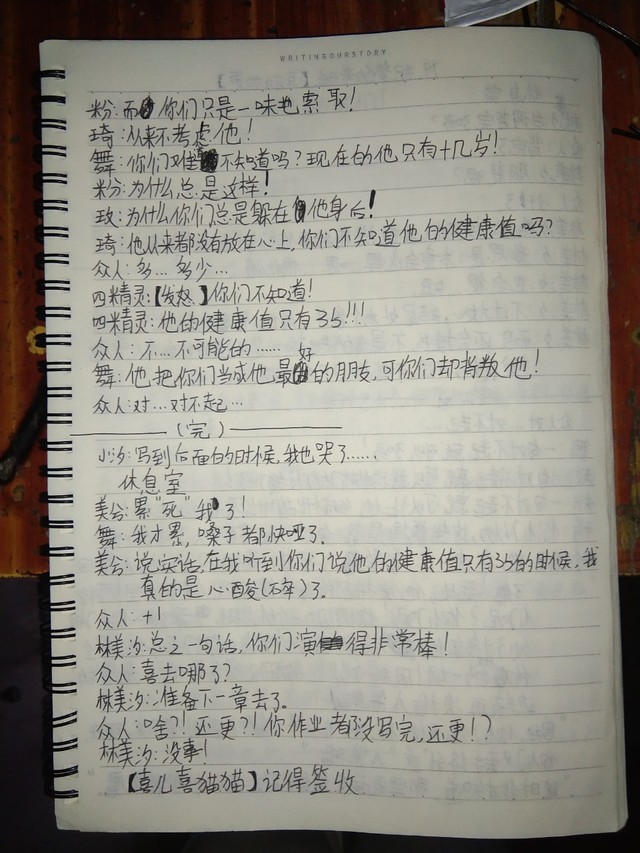 WRITINGOURSTORY
粉:而你们只是一味地索取!
琦:从来不考虑他!
舞:你们难道不知道吗?现在的他只有十几岁!
粉:为什么总是这样!
玫:为什么你们总是躲在他身后!
琦:他从来都没有放在心上,你们不知道他的健康值吗?
众人:多…多少…
四精灵:【发怒】你们不知道!
四精灵:他的健康值只有35!!!
众人:不…不可能的……
舞:他把你们当成他最好的朋友,可你们却背叛他!
众人:对…对不起…
(完)
小汐:写到后面的时候,我也哭了……
休息室
美兮:累"死"我了!
舞:我才累,嗓子都快哑了.
美兮:说实话,在我听到你们说他的健康值只有35的时候,我
真的是心酸(碎)了.
众人:+1
林美汐:总之一句话,你们演得非常棒!
众人:喜去哪了?
林美汐:准备下一章去了。
众人:啥?!还更?!你作业都没写完,还更!?
林美汐:没事!
【喜儿喜猫猫】记得签收